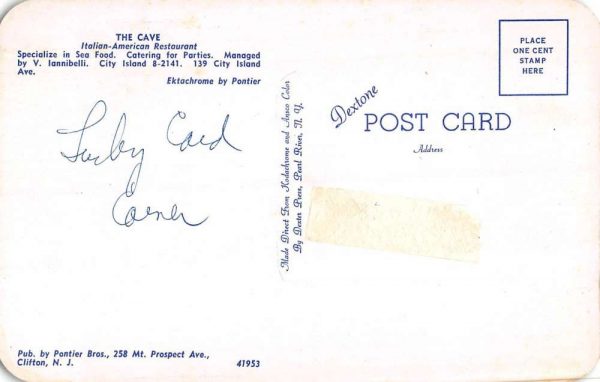 THE CAVE
Italian-American Restaurant
Specialize in Sea Food. Catering for Parties. Managed
by V. Iannibelli. City Island 8-2141. 139 City Island
Ave.
Ektachrome by Pontier
Card
Corner
Pub. by Pontier Bros., 258 Mt. Prospect Ave.,
Clifton, N. J.
41953
Made Direct From Kodachrome and Ansco Color
By Dexter Press, Pearl River, N. Y.
Dextone
POST CARD
Address
PLACE
ONE CENT
STAMP
HERE